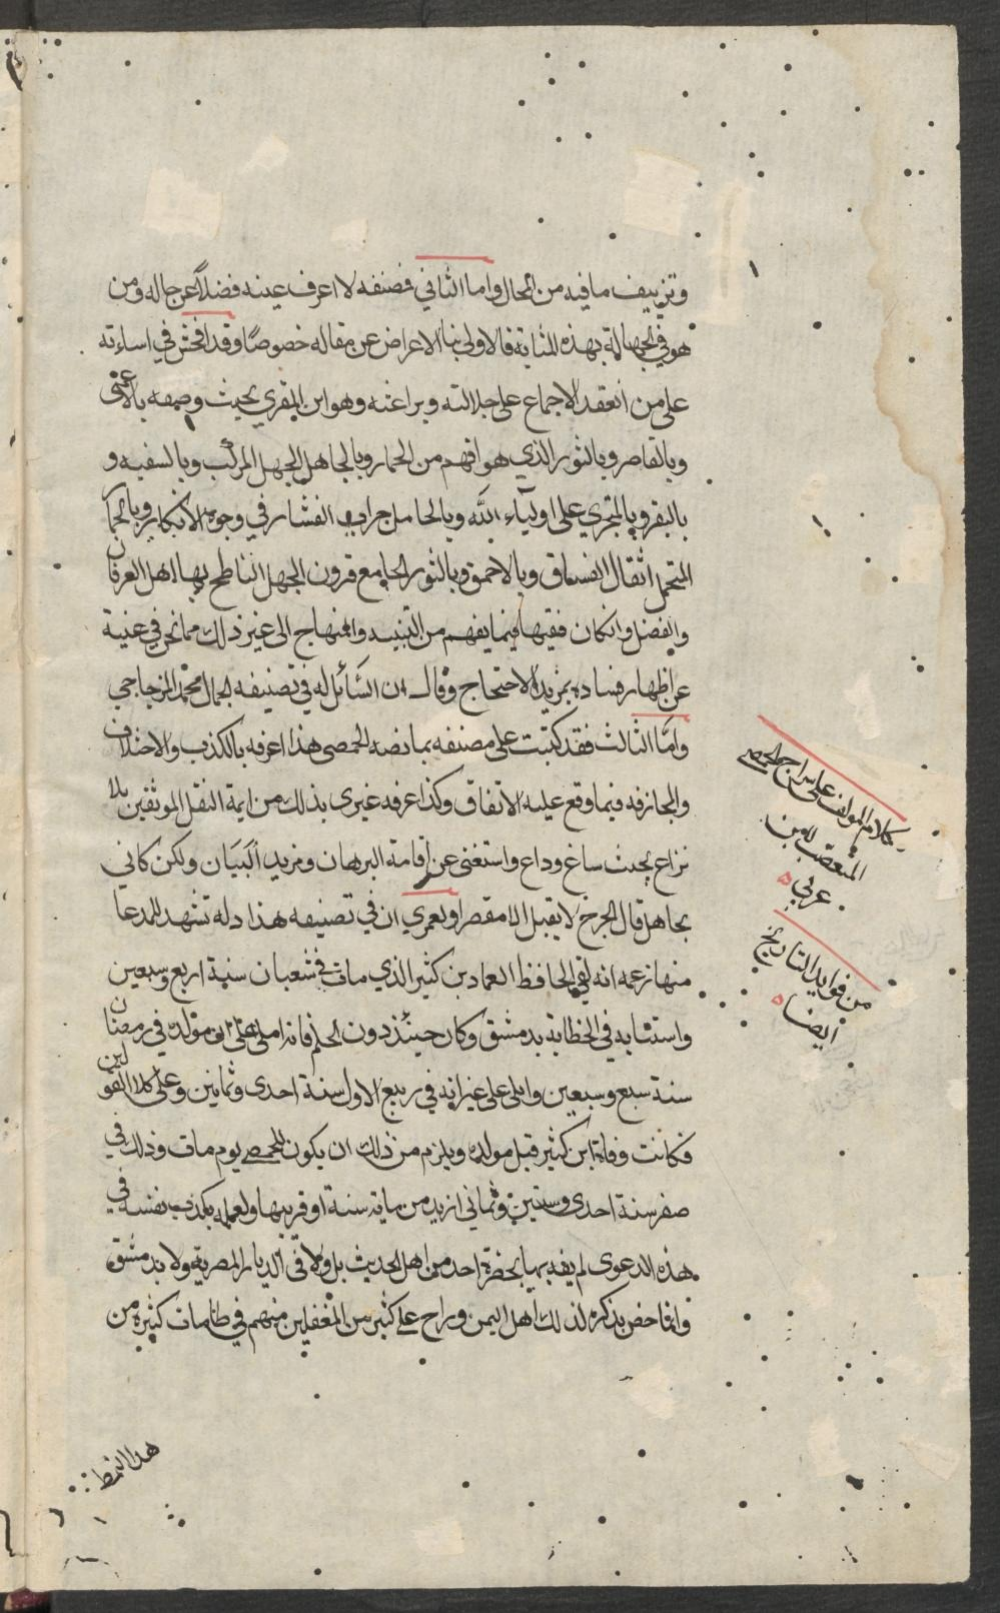 وتزييف ما فيه من المحال واما الثاني فمصنفه لا اعرف عينه فضلاً عن حاله ومن
هو في الجهالة بهذه المثابة فالاولى بنا الاعراض عن مقاله خصوصًا وقد افحش في اساءته
على من انعقد الاجماع على جلالته وبراعته وهو ابن المقري بحيث وصفه بالاعمى
وبالقاصر وبالثور الذي هو افهم من الحمار وبالجاهل الجهل المركب وبالسفيه و
بالبقر وبالمتجري على اولياء الله وبالحامل جراب الفشار في وجوه الانكار وبالحمار
المتحمل اثقال الفساق وبالاحمق وبالثور الجامع قرون الجهل الناطح بها اهل العرفان
والفضل وان كان فقيها فيما يفهم من التنبيه والمنهاج الى غير ذلك مما نحن في غنية
عن اظهار فساده بمزيد الاحتجاج وقال ان السائل له في تصنيفه الجمال محمد المزجاجي
وامّا الثالث فقد كتبت على مصنفه بما نصه الحمصي هذا اعرفه بالكذب والاختلاف
والمجازفه فيما وقع عليه الاتفاق وكذا عرفه غيري بذلك من ايمة النقل الموثقين بلا
نزاع بحيث ساغ وذاع واستغنى عن اقامة البرهان ومزيد البيان ولكن كاني
بجاهل قال الجرح لا يقبل الا مفصرا ولعمري ان في تصنيفه هذا دله تشهد للمدعا
منها زعمه انه لقي الحافظ العماد بن كثير الذي مات في شعبان سنة اربع وسبعين
واستنابه في الخطابة بدمشق وكان حينئذ دون الحلم فانه املى على ان مولده في رمضان
سنة سبع وسبعين واملى على غيرانه في ربيع الاول سنة احدى وثمانين وعلى كلا القولين
فكانت وفاة ابن كثير قبل مولده ويلزم من ذلك ان يكون للحمصي يوم مات وذلك في
صفر سنة احدى وستين وثماني ازيد من ماية سنة او قريبها ولعمله بكذب نفسه في
هذه الدعوى لم يفه بها بحضرة احد من اهل الحديث بل ولا في الديار المصرية ولا بدمشق
وانما خص بذكره لذلك اهل اليمن وراج على كثير من المغفلين منهم في طامات كثيرة من
هذا النمط
كلام المولف على سراج الحمصي
المتعصب لابن
عربي
من فوايد التاريخ
ايضا